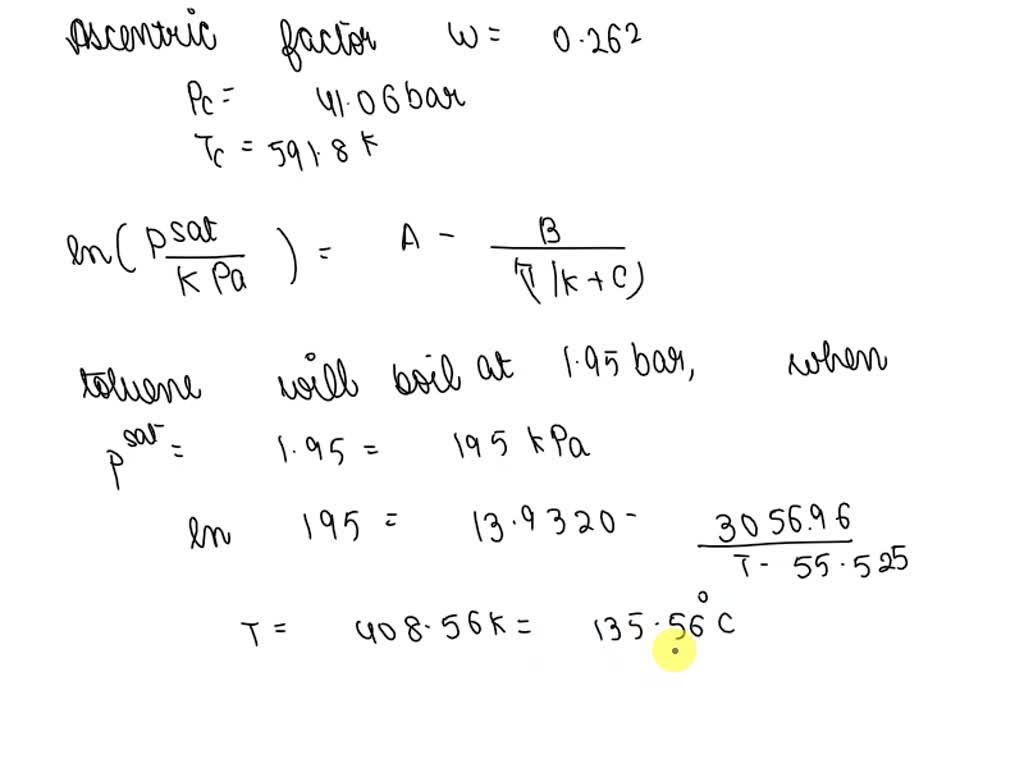 Ascentric factor ω = 0.262
Pc = 41.06 bar
Tc = 591.8 K
ln(P^sat / K Pa) = A - B / (T/K + C)
toluene will boil at 1.95 bar, when
P^sat = 1.95 = 195 kPa
ln 195 = 13.9320 - 3056.96 / T - 55.525
T = 408.56K = 135.56°C